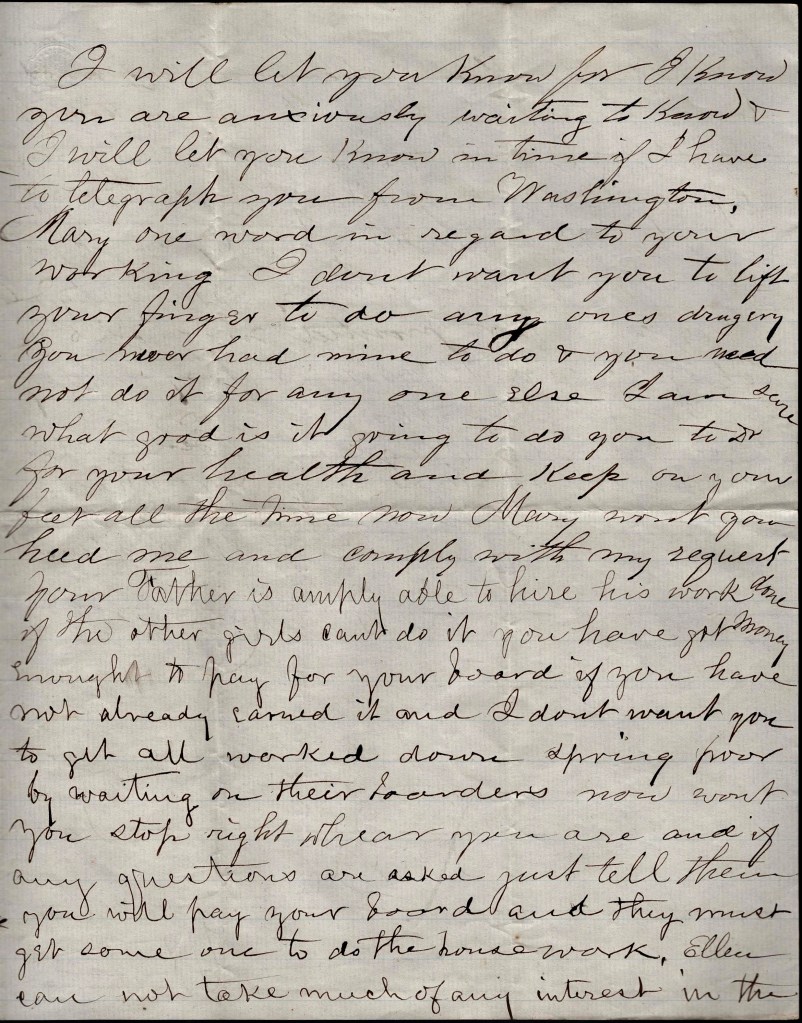 I will let you Know for I Know
you are anxiously waiting to Know &
I will let you Know in time if I have
to telegraph you from Washington,
Mary one word in regard to your
working I dont want you to lift
your finger to do any ones drugery
you never had mine to do & you need
not do it for any one else I am sure
what good is it going to do you to Dr
for your health and Keep on your
feet all the time now Mary wont you
heed me and comply with my request
your Father is amply able to hire his work done
if the other girls cant do it you have got money
enought to pay for your board if you have
not already earned it and I dont want you
to get all worked down spring poor
by waiting on their boarders now wont
you stop right whear you are and if
any questions are asked just tell them
you will pay your board and they must
get some one to do the housework, Ellen
can not take much of any interest in the